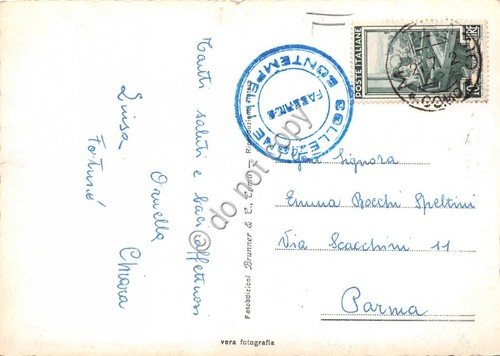 Tanti saluti e baci affettuosi
Ornella
Luisa
Chiara
Fotoedizioni Brunner & C., Como - Riproduzione vietata
COLLEZIONE
BONTEMPELLI
FAUSTO
do not copy
POSTE ITALIANE
LIRE
COMO
Gent. Signora
Emma Bocchi Speltini
Via Scacchini 11
Parma
vera fotografia